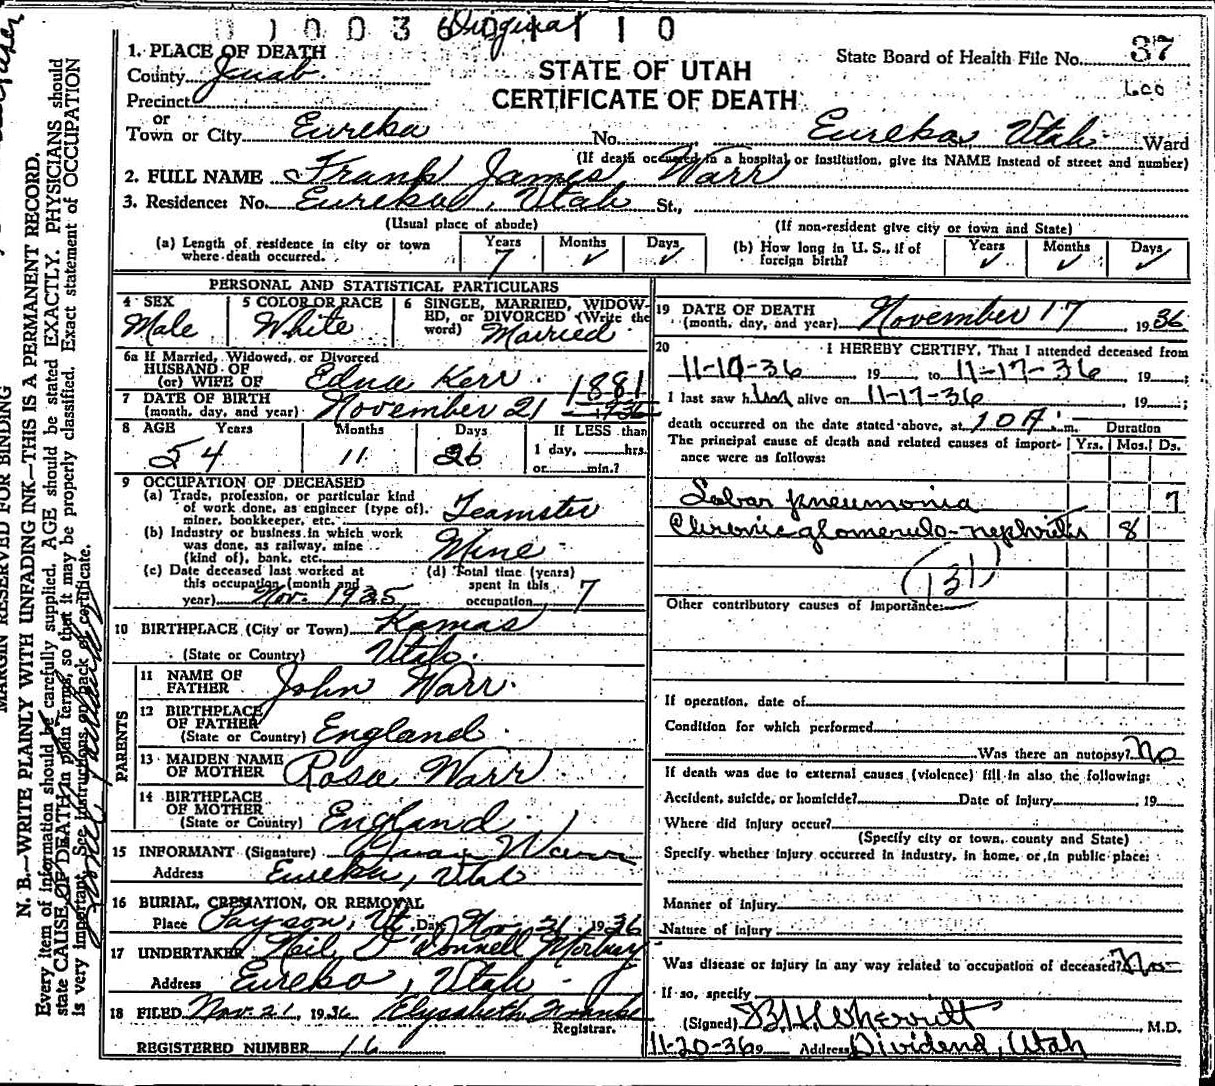 Original
0 1 0 0 3 6 0 1 1 1 0
STATE OF UTAH
CERTIFICATE OF DEATH
State Board of Health File No. 37
600
1. PLACE OF DEATH
County Juab
Precinct
or
Town or City Eureka No. Eureka, Utah Ward
(If death occurred in a hospital or institution, give its NAME instead of street and number)
2. FULL NAME Frank James Warr
3. Residence: No. Eureka, Utah St.,
(Usual place of abode) (If non-resident give city or town and State)
(a) Length of residence in city or town where death occurred. Years 7 Months ✓ Days ✓
(b) How long in U. S., if of foreign birth? Years ✓ Months ✓ Days ✓
PERSONAL AND STATISTICAL PARTICULARS
4 SEX Male
5 COLOR OR RACE White
6 SINGLE, MARRIED, WIDOWED, or DIVORCED (Write the word) Married
6a If Married, Widowed, or Divorced
HUSBAND OF
(or) WIFE OF Edna Kerr
7 DATE OF BIRTH
(month, day, and year) November 21 1881 1936
8 AGE Years 54 Months 11 Days 26 If LESS than
1 day, hrs.
or min.?
9 OCCUPATION OF DECEASED
(a) Trade, profession, or particular kind
of work done, as engineer (type of),
miner, bookkeeper, etc. Teamster
(b) Industry or business in which work
was done, as railway, mine
(kind of), bank, etc. Mine
(c) Date deceased last worked at
this occupation (month and
year) Nov. 1935
(d) Total time (years)
spent in this
occupation 7
10 BIRTHPLACE (City or Town) Kamas
(State or Country) Utah.
PARENTS
11 NAME OF
FATHER John Warr.
12 BIRTHPLACE
OF FATHER
(State or Country) England.
13 MAIDEN NAME
OF MOTHER Rosa Warr
14 BIRTHPLACE
OF MOTHER
(State or Country) England.
15 INFORMANT (Signature) Warr
Address Eureka, Utah
16 BURIAL, CREMATION, OR REMOVAL
Place Payson, Ut. Date Nov. 21 1936
17 UNDERTAKER Neil O'Donnell Mortuary
Address Eureka, Utah
18 FILED Nov. 21, 1936 Elysabeth Franke
Registrar.
REGISTERED NUMBER 16
19 DATE OF DEATH
(month, day, and year) November 17 1936
20 I HEREBY CERTIFY, That I attended deceased from
11-10-36 19 to 11-17-36 19 ;
I last saw him alive on 11-17-36 19 ;
death occurred on the date stated above, at 10 A. m. Duration
The principal cause of death and related causes of importance were as follows: Yrs. Mos. Ds.
Lobar pneumonia 7
Chronic glomerulo-nephritis 8
(131)
Other contributory causes of importance:
If operation, date of
Condition for which performed
Was there an autopsy? No
If death was due to external causes (violence) fill in also the following:
Accident, suicide, or homicide? Date of injury , 19
Where did injury occur?
(Specify city or town, county and State)
Specify whether injury occurred in industry, in home, or in public place:
Manner of injury
Nature of injury
Was disease or injury in any way related to occupation of deceased? No
If so, specify
(Signed) M.D.
11-20-36 9 Address Dividend, Utah
MARGIN RESERVED FOR BINDING
N. B.—WRITE PLAINLY WITH UNFADING INK—THIS IS A PERMANENT RECORD.
Every item of information should be carefully supplied. AGE should be stated EXACTLY. PHYSICIANS should
state CAUSE OF DEATH in plain terms, so that it may be properly classified. Exact statement of OCCUPATION
is very important. See instructions on back of certificate.